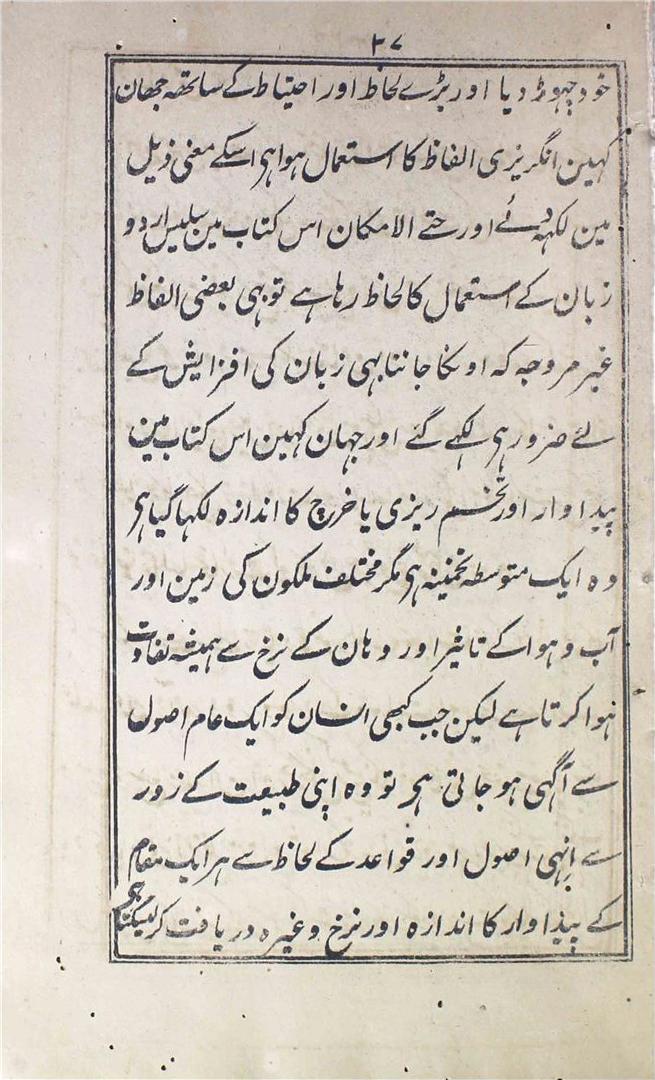 ۳۷
خود چھوڑ دیا اور بڑے لحاظ اور احتیاط کے ساتھہ جہان
کہین انگریزی الفاظ کا استعمال ہوا ہی اسکے معنی ذیل
مین لکہہ دئے اور حتے الامکان اس کتاب مین سلیس اردو
زبان کے استعمال کا لحاظ رہا ہے توبہی بعضی الفاظ
غیر مروجہ کہ اونکا جاننا بہی زبان کی افزایش کے
لئے ضرور ہی لکہے گئے اور جہان کہین اس کتاب مین
پیداوار اور تخم ریزی یا خرچ کا اندازہ لکہا گیا ہی
وہ ایک متوسطہ تخمینہ ہی مگر مختلف ملکون کی زمین اور
آب و ہوا کے تاثیر اور وہان کے نرخ سے ہمیشہ تفاوت
ہوا کرتا ہے لیکن جب کبھی انسان کو ایک عام اصول
سے آگہی ہو جاتی ہی تو وہ اپنی طبیعت کے زور
سے انہی اصول اور قواعد کے لحاظ سے ہر ایک مقام
کے پیداوار کا اندازہ اور نرخ وغیرہ دریافت کر لیسکتا ہی